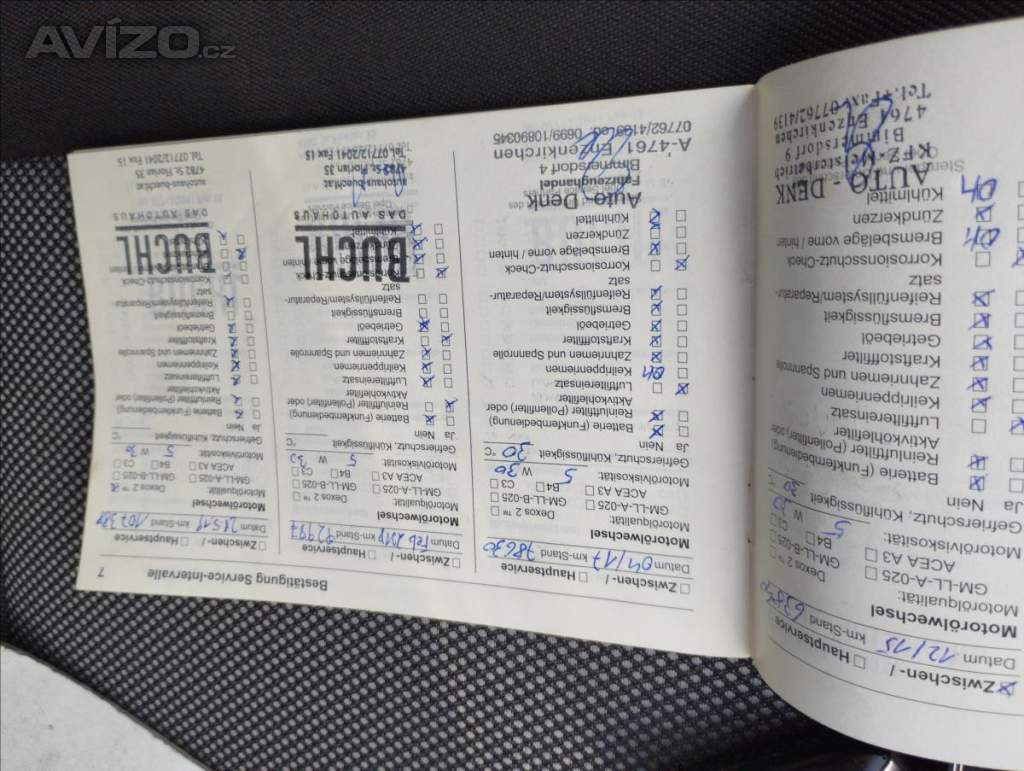 AVÍZO.cz
Bestätigung Service-Intervalle
7
Zwischen- /
Hauptservice
Datum 12/15 km-Stand
Motorölwechsel
Motorölqualität:
GM-LL-A-025
GM-LL-B-025
Dexos 2 ™
ACEA A3
B4
C3
Motorölviskosität
5 W 30
Gefrierschutz, Kühlflüssigkeit
Ja Nein
Batterie (Funkfernbedienung)
Reinluftfilter (Pollenfilter) oder
Aktivkohlefilter
Luftfiltereinsatz
Keilrippenriemen
Zahnriemen und Spannrolle
Kraftstofffilter
Getriebeöl
Bremsflüssigkeit
Reifenfüllsystem/Reparatur-
satz
Korrosionsschutz-Check
Bremsbeläge vorne / hinten
Zündkerzen
Kühlmittel
AUTO - DENK
KFZ-Meisterbetrieb
4761 Enzenkirchen
Tel.+Fax 07762/4139
Zwischen- /
Hauptservice
Datum 04/17 km-Stand 78630
Motorölwechsel
Motorölqualität:
Dexos 2 ™
GM-LL-A-025
GM-LL-B-025
ACEA A3
B4
C3
Motorölviskosität:
5 W 30
Gefrierschutz, Kühlflüssigkeit 30 °C
Ja Nein
Batterie (Funkfernbedienung)
Reinluftfilter (Pollenfilter) oder
Aktivkohlefilter
Luftfiltereinsatz
Keilrippenriemen
Zahnriemen und Spannrolle
Kraftstofffilter
Getriebeöl
Bremsflüssigkeit
Reifenfüllsystem/Reparatur-
satz
Korrosionsschutz-Check
Bremsbeläge vorne / hinten
Zündkerzen
Kühlmittel
Auto Denk
Fahrzeughandel
Binnersdorf 4
A-4761 Enzenkirchen
0699/10890345
Zwischen- /
Hauptservice
Datum Feb 2018 km-Stand 92997
Motorölwechsel
Motorölqualität:
Dexos 2 ™
GM-LL-A-025
GM-LL-B-025
ACEA A3
B4
C3
Motorölviskosität:
5 W 30
Gefrierschutz, Kühlflüssigkeit °C
Ja Nein
Batterie (Funkfernbedienung)
Reinluftfilter (Pollenfilter) oder
Aktivkohlefilter
Luftfiltereinsatz
Keilrippenriemen
Zahnriemen und Spannrolle
Kraftstofffilter
Getriebeöl
Bremsflüssigkeit
Reifenfüllsystem/Reparatur-
satz
BÜCHL
DAS AUTOHAUS
autohaus-buechl.at
4782 St. Florian 35
Tel. 07712/3041 Fax 15
Zwischen- /
Hauptservice
Datum km-Stand
Motorölwechsel
Motorölqualität:
Dexos 2 ™
GM-LL-A-025
GM-LL-B-025
ACEA A3
B4
C3
Motorölviskosität:
5 W 30
Gefrierschutz, Kühlflüssigkeit °C
Ja Nein
Batterie (Funkfernbedienung)
Reinluftfilter (Pollenfilter) oder
Aktivkohlefilter
Luftfiltereinsatz
Keilrippenriemen
Zahnriemen und Spannrolle
Kraftstofffilter
Getriebeöl
Bremsflüssigkeit
Reifenfüllsystem/Reparatur-
satz
Korrosionsschutz-Check
BÜCHL
DAS AUTOHAUS
autohaus-buechl.at
4782 St. Florian 35
Tel. 07712/3041 Fax 15